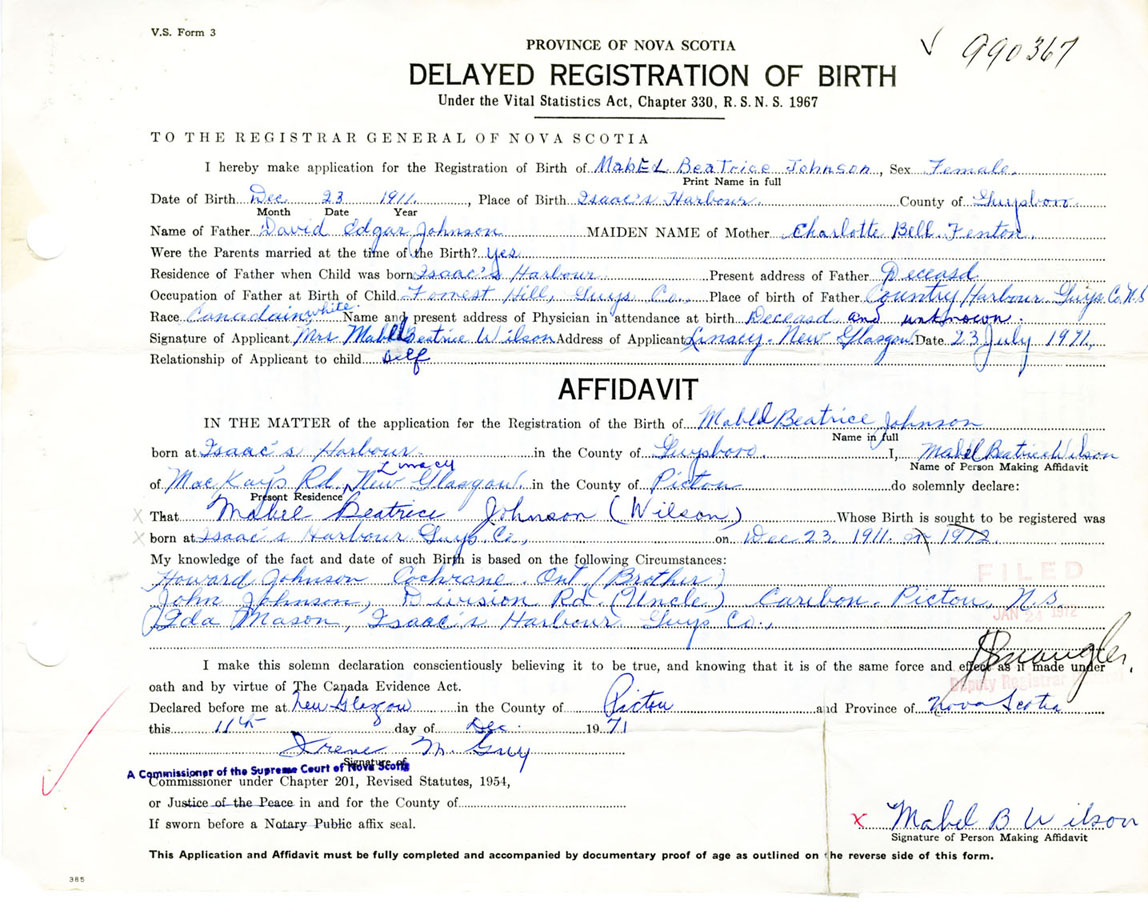 V.S. Form 3
PROVINCE OF NOVA SCOTIA
✓ 990367
DELAYED REGISTRATION OF BIRTH
Under the Vital Statistics Act, Chapter 330, R. S. N. S. 1967
TO THE REGISTRAR GENERAL OF NOVA SCOTIA
I hereby make application for the Registration of Birth of MabEL Beatrice Johnson, Sex Female.
Print Name in full
Date of Birth Dec 23 1911, Place of Birth Isaac's Harbour. County of Guysboro.
Month Date Year
Name of Father David Edgar Johnson MAIDEN NAME of Mother Charlotte Bell Fenton.
Were the Parents married at the time of the Birth? Yes
Residence of Father when Child was born Isaac's Harbour Present address of Father Deceasd
Occupation of Father at Birth of Child Forrest Hill, Guys Co. Place of birth of Father Country Harbour Guys Co. N.S
Race Canadain white. Name and present address of Physician in attendance at birth Deceasd and unknown.
Signature of Applicant Mrs Mabel Beatrice Wilson Address of Applicant Linsey. New Glasgow Date 23 July 1971,
Relationship of Applicant to child self
AFFIDAVIT
IN THE MATTER of the application for the Registration of the Birth of Mabel Beatrice Johnson
Name in full
born at Isaac's Harbour in the County of Guysboro. I, Mabel Beatrice Wilson
Name of Person Making Affidavit
Linacy
of MacKay's Rd, New Glasgow in the County of Picton do solemnly declare:
Present Residence
X That Mabel Beatrice Johnson (Wilson) Whose Birth is sought to be registered was
X born at Isaac's Harbour Guys Co., on Dec 23. 1911. or 1912.
My knowledge of the fact and date of such Birth is based on the following Circumstances:
Howard Johnson Cochrane. Ont. (Brother)
John Johnson, Division Rd. (Uncle) Caribon. Picton, N.S
Ida Mason, Isaac's Harbour Guys Co.,
FILED
JAN 24 1972
I make this solemn declaration conscientiously believing it to be true, and knowing that it is of the same force and effect as if made under
oath and by virtue of The Canada Evidence Act.
Deputy Registrar General
Declared before me at New Glasgow in the County of Picton and Province of Nova Scotia
this 11th day of Dec 1971
Irene M. Guy
Signature of
A Commissioner of the Supreme Court of Nova Scotia
Commissioner under Chapter 201, Revised Statutes, 1954,
or Justice of the Peace in and for the County of
If sworn before a Notary Public affix seal.
x Mabel B Wilson
Signature of Person Making Affidavit
This Application and Affidavit must be fully completed and accompanied by documentary proof of age as outlined on the reverse side of this form.
385